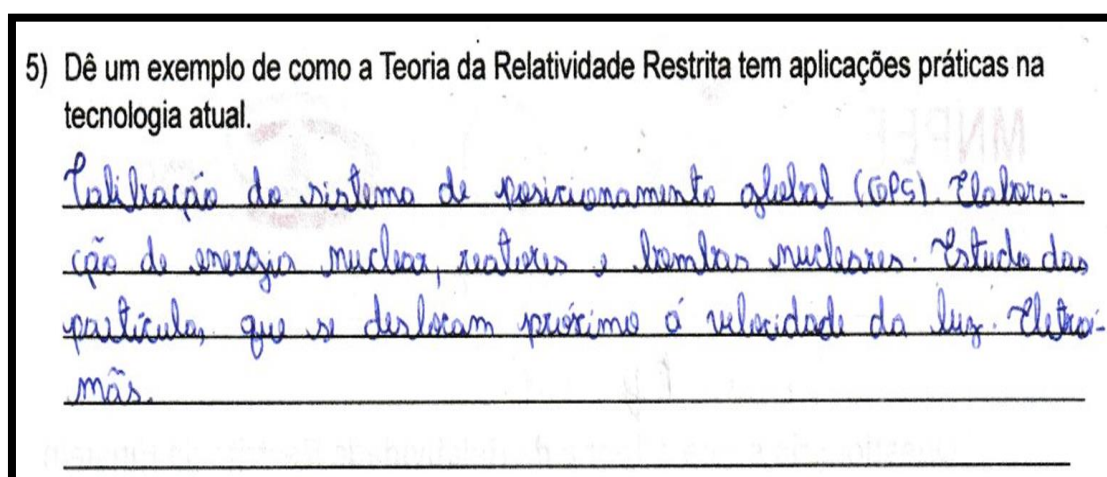 5) Dê um exemplo de como a Teoria da Relatividade Restrita tem aplicações práticas na
tecnologia atual.
Calibração do sistema de posicionamento global (GPS). Elabora-
ção de energia nuclear, reatores e bombas nucleares. Estudo das
partículas, que se deslocam próximo à velocidade da luz. Eletroí-
mãs.